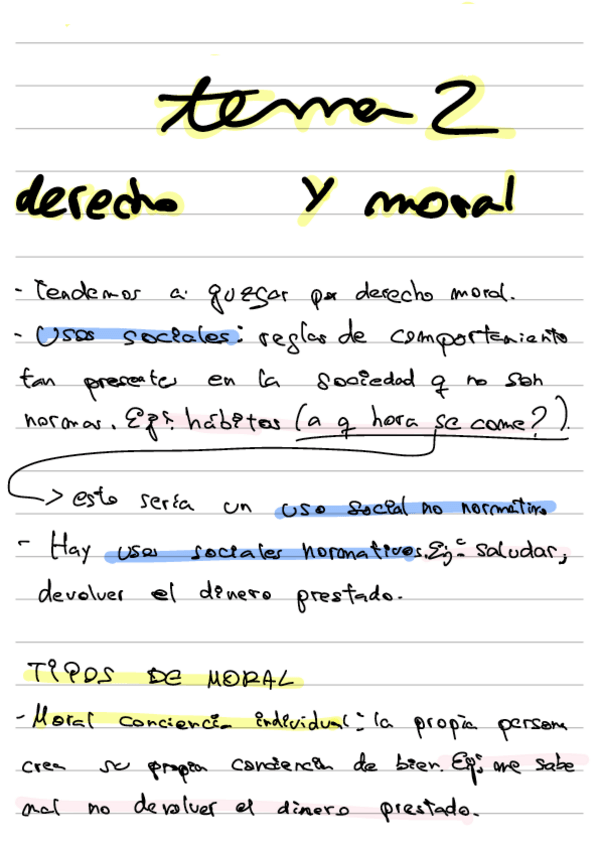 tema 2
derecho y moral
- Tendemos a quezar por derecho moral.
- Usos sociales: reglas de comportamiento
tan presente en la sociedad q no son
normas. Ej: hábitos (a q hora se come?).
-> esto seria un uso social no normativo
- Hay usos sociales normativos. Ej: saludar,
devolver el dinero prestado.
TIPOS DE MORAL
- Moral conciencia individual: la propia persona
crea su propia conciencia de bien. Ej: me sabe
mal no devolver el dinero prestado.